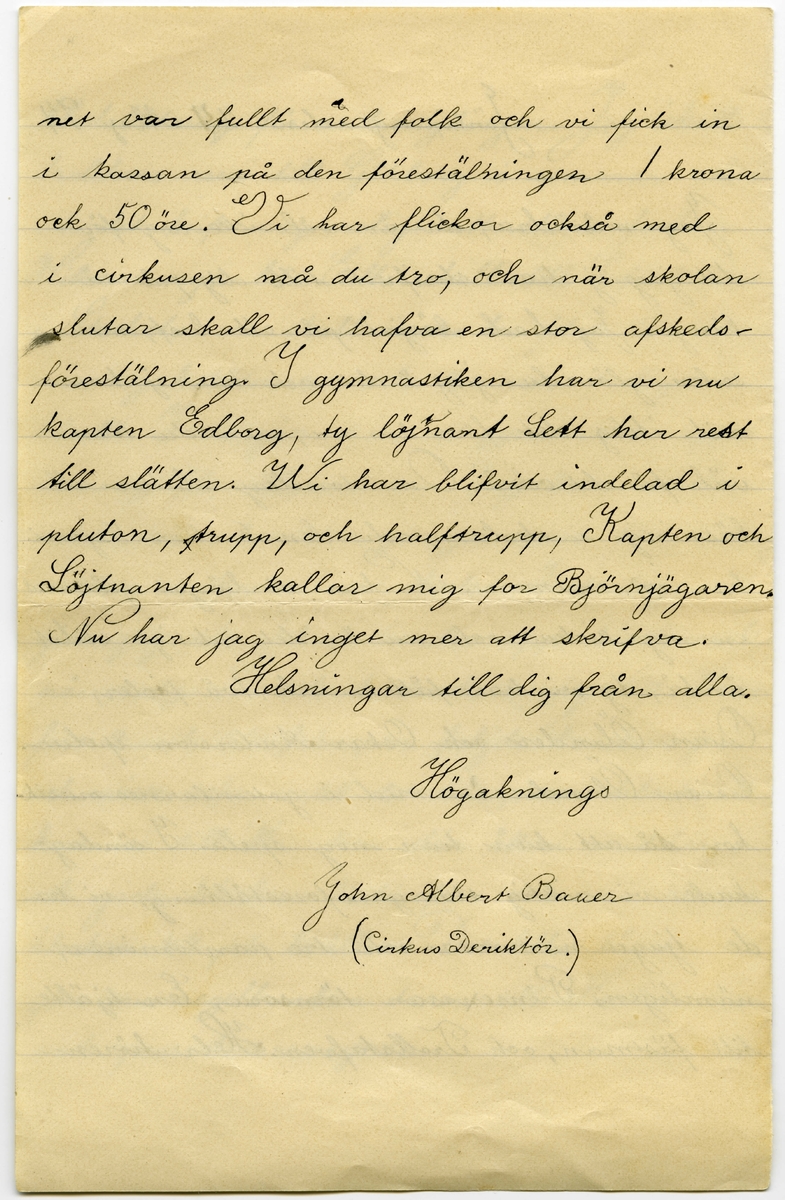 net var fullt med folk och vi fick in
i kassan på den förestälningen 1 krona
ock 50 öre. Vi har flickor också med
i cirkusen må du tro, och när skolan
slutar skall vi hafva en stor afskeds-
förestälning. I gymnastiken har vi nu
kapten Edborg, ty löjtnant Sett har rest
till slätten. Wi har blifvit indelad i
pluton, trupp, och halftrupp, Kapten och
Löjtnanten kallar mig for Björnjägaren.
Nu har jag inget mer att skrifva.
Helsningar till dig från alla.
Högaknings
John Albert Bauer
(Cirkus Deriktör.)